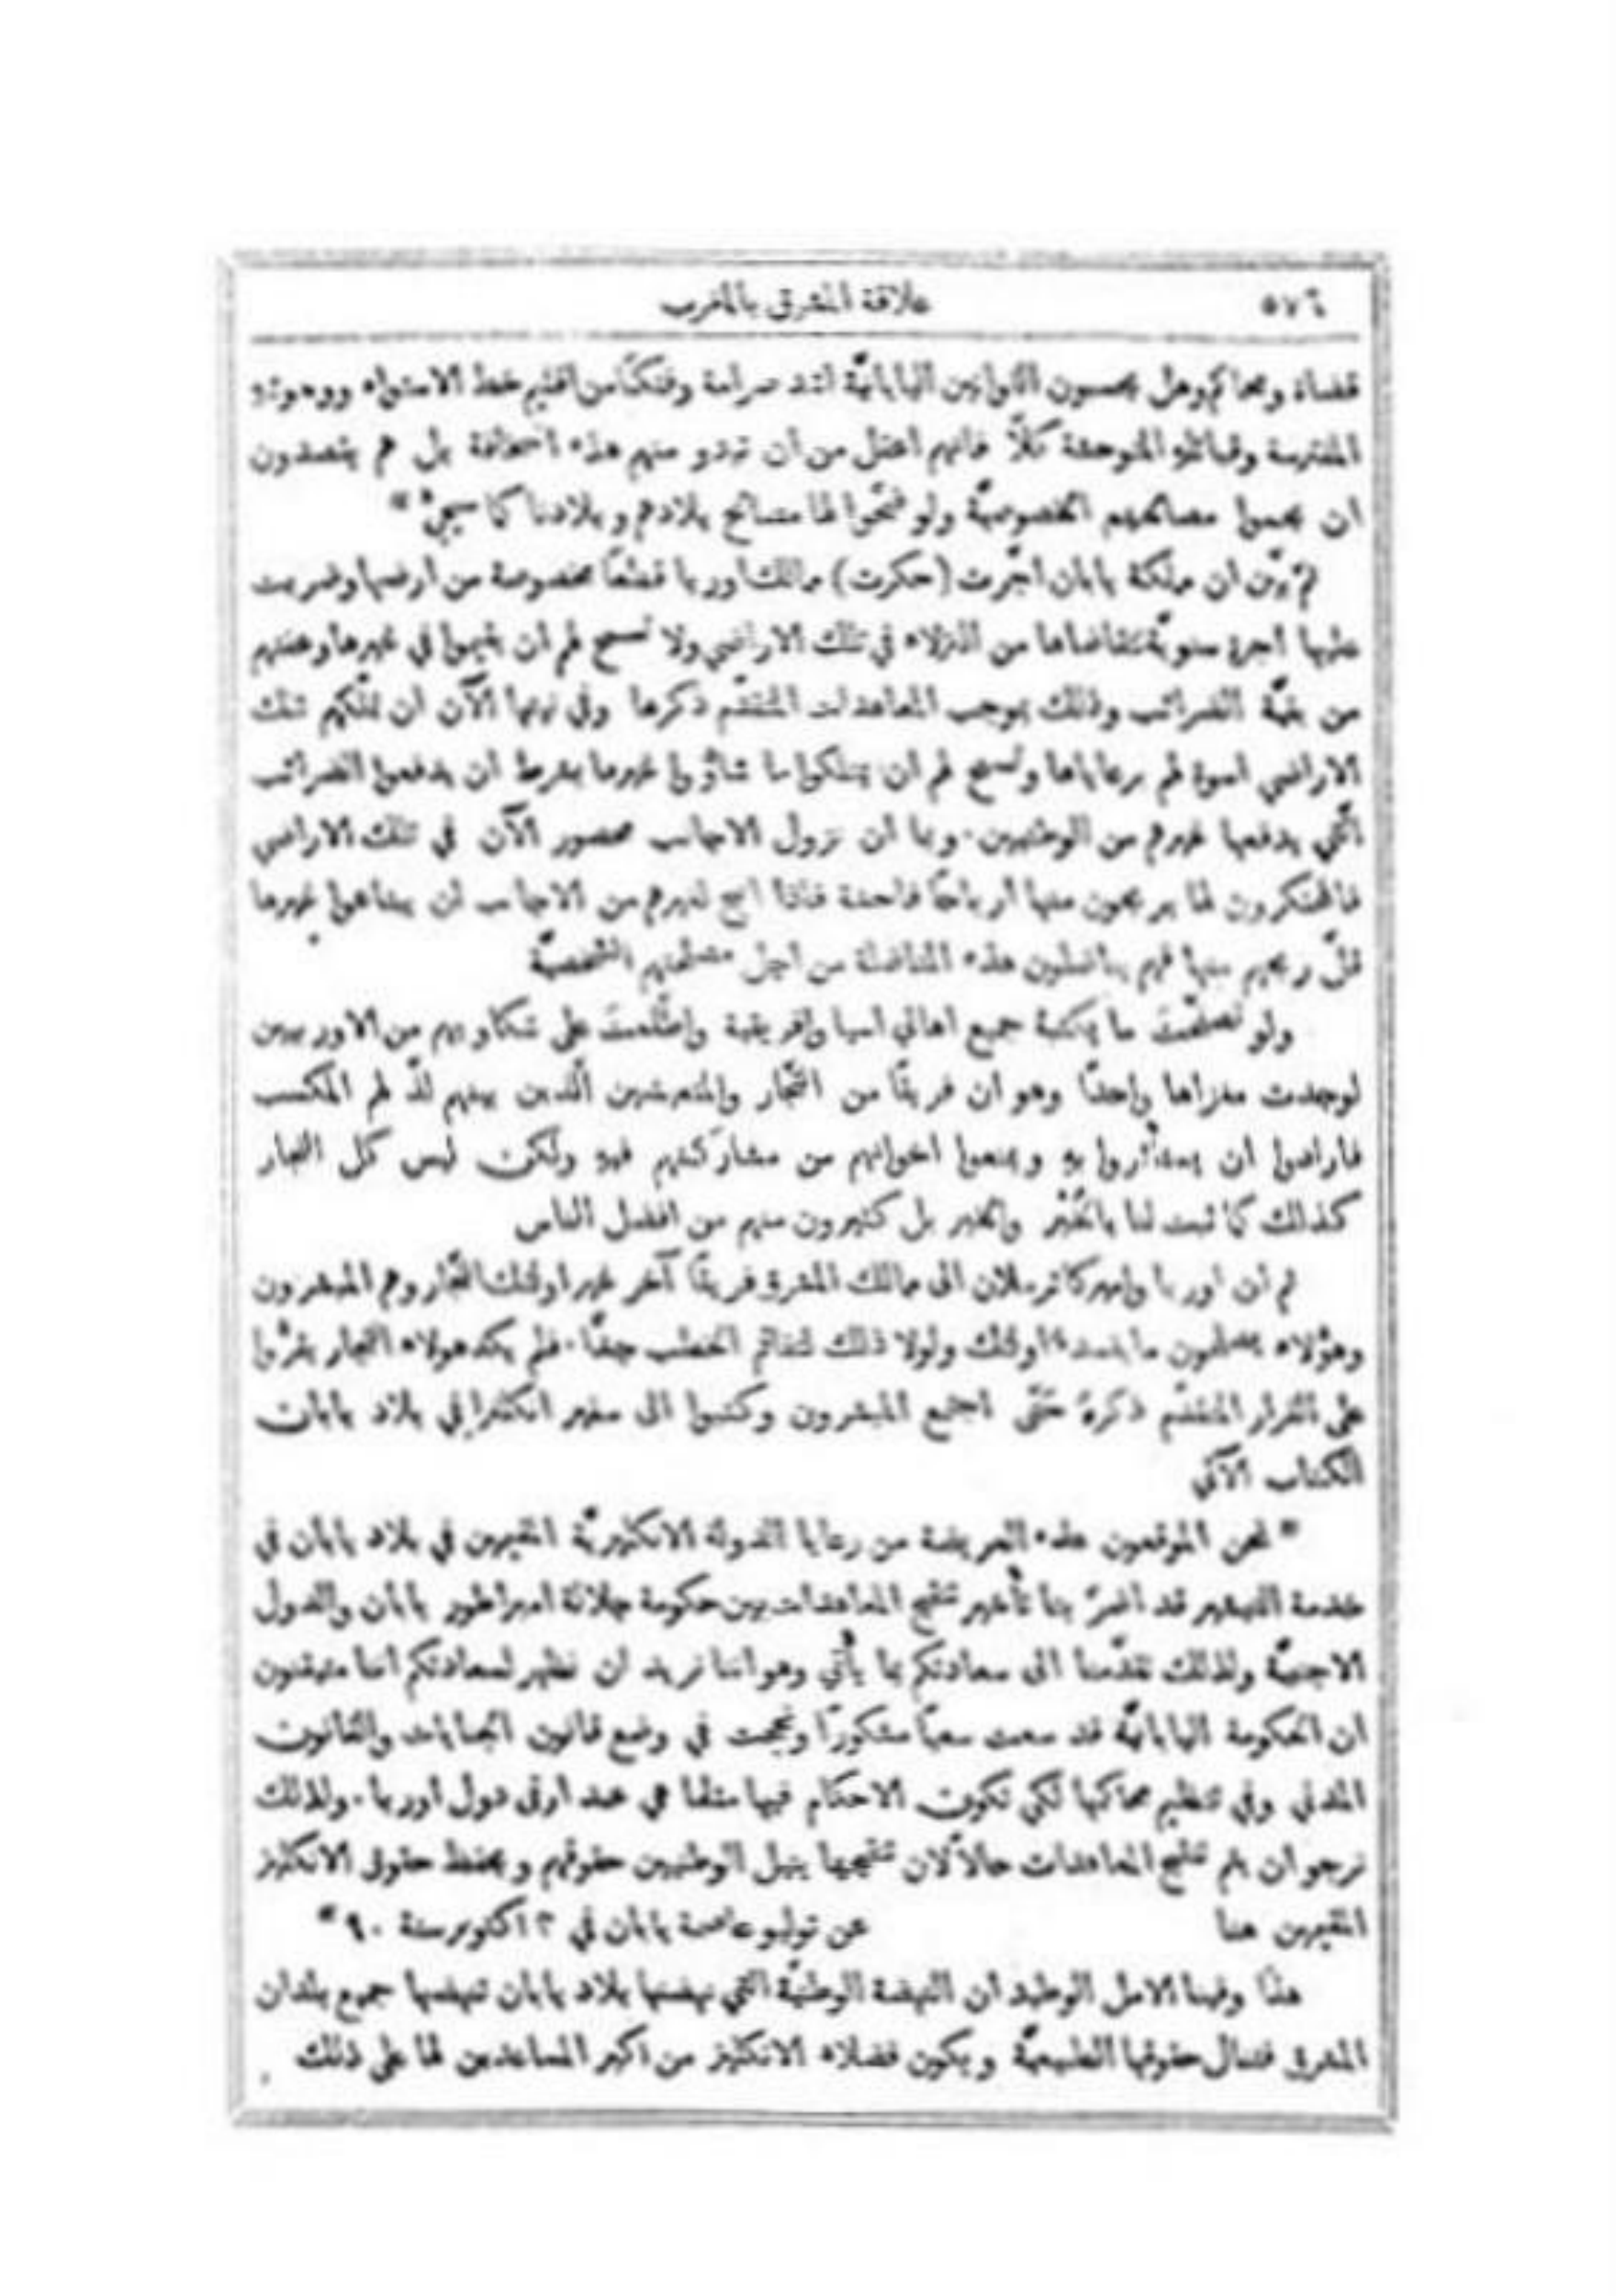 ٥٧٤ علاقة المشرق بالمغرب
قضاة ومحاكم وهل يحسبون القوانين اليابانيَّة اشد صرامة وفتكًا من اقليم خط الاستواء ووحوشهِ
المفترسة وقبائلهِ المتوحشة كلَّا فانهم اعقل من ان تبدو منهم هذه الحماقة بل هم يقصدون
ان يحموا مصالحهم الخصوصيَّة ولو ضحَّوا لها مصالح بلادهم وبلادنا كما سيجيءُ "
ثم بيَّن ان مملكة يابان اجَّرت (حكرت) ممالك اوربا قطعًا مخصوصة من ارضها وضربت
عليها اجرة سنويَّة تتقاضاها من النزلاء في تلك الاراضي ولا تسمح لهم ان يقيموا في غيرها وعفتهم
من بقيَّة الضرائب وذلك بموجب المعاهدات المتقدّم ذكرها وفي نيتها الآن ان تملّكهم تلك
الاراضي اسوة لهم برعاياها وتسمح لهم ان يمتلكوا ما شاؤُوا غيرها بشرط ان يدفعوا الضرائب
الَّتي يدفعها غيرهم من الوطنيين. وبما ان نزول الاجانب محصور الآن في تلك الاراضي
فالمحتكرون لها يربحون منها ارباحًا فاحشة فاذا ابيح لغيرهم من الاجانب ان يبتاعوا غيرها
قلَّ ربحهم منها فهم يناضلون هذه المناضلة من اجل مصلحتهم الشخصيَّة
ولو تصفَّحتَ ما يكتبهُ جميع اهالي اسيا وافريقية واطَّلعتَ على شكاويهم من الاوربيين
لوجدت مغزاها واحدًا وهو ان فريقًا من التجَّار والمتعيشين الَّذين بينهم لذَّ لهم المكسب
فارادوا ان يستأثروا بهِ ويمنعوا اخوانهم من مشاركتهم فيهِ ولكن ليس كل التجار
كذلك كما ثبت لنا بالخُبْر والخبر بل كثيرون منهم من افضل الناس
ثم ان اوربا واميركا ترسلان الى ممالك المشرق فريقًا آخر غير اولئك التجَّار وهم المبشرون
وهؤُلاء يصلحون ما يفسدهُ اولئك ولولا ذلك لتفاقم الخطب جدًّا. فلم يكد هولاء التجار يقرُّوا
على القرار المتقدّم ذكرهُ حَتَّى اجتمع المبشرون وكتبوا الى سفير انكلترا في بلاد يابان
الكتاب الآتي
" نحن الموقعون هذه العريضة من رعايا الدولة الانكليزيَّة المقيمين في بلاد يابان في
خدمة التبشير قد اضرَّ بنا تأخير تنقيح المعاهدات بين حكومة جلالة امبراطور يابان والدول
الاجنبيَّة ولذلك تقدَّمنا الى سعادتكم بما يأْتي وهو اننا نريد ان نظهر لسعادتكم اننا متيقنون
ان الحكومة اليابانيَّة قد سعت سعيًا مشكورًا ونجحت في وضع قانون الجنايات والقانون
المدني وفي تنظيم محاكمها لكي تكون الاحكام فيها مثلما هي عند ارقى دول اوربا. ولذلك
نرجو ان يتم تنقيح المعاهدات حالًا لان تنقيحها ينيل الوطنيين حقوقهم ويحفظ حقوق الانكليز
المقيمين هنا عن توكيو عاصمة يابان في ٣ اكتوبر سنة ٩٠ "
هذا وفينا الامل الوطيد ان النهضة الوطنيَّة التي نهضتها بلاد يابان تنهضها جميع بلدان
المشرق فتنال حقوقها الطبيعيَّة ويكون فضلاء الانكليز من اكبر المساعدين لها على ذلك